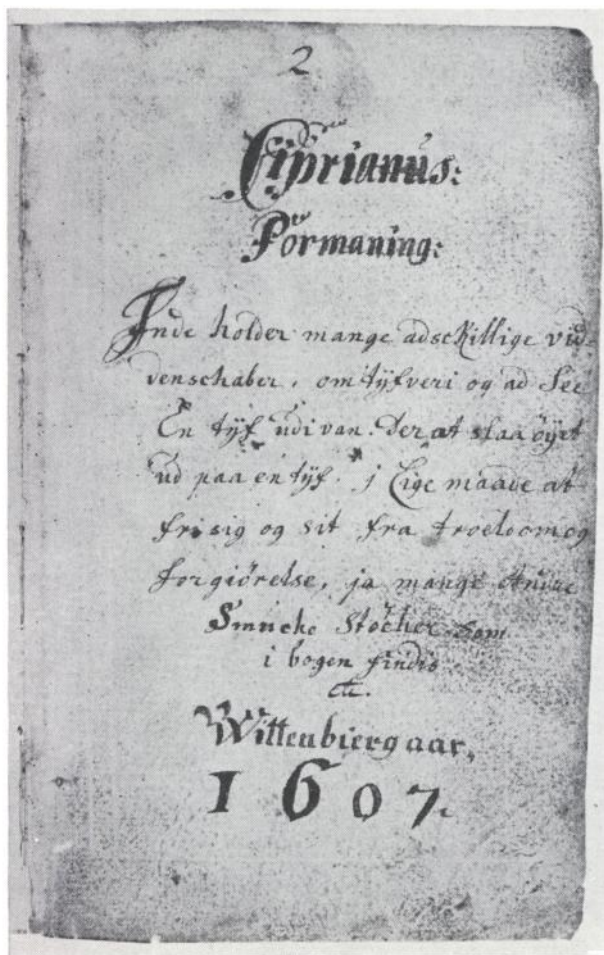 2
Ciprianus:
Formaning:
Inde holder mange adsckillige vid-
denschaber, om tÿfveri og ad See
En tÿf udi van. Der at slaa öÿet
ud paa en tÿf. j Lige maade at
fri sig og sit fra troeldom og
forgiörelse, ja mange Andre
Smucke Stöcher som
i bogen findis
etc.
Wittenbierg aar,
1607.